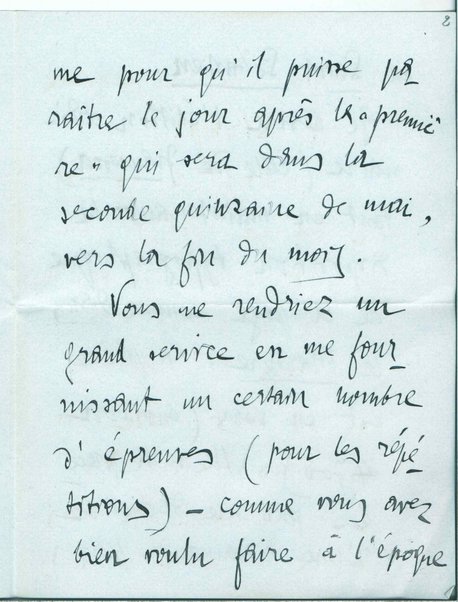 2
me pour qu'il puisse pa
raître le jour après la "premiè
re" qui sera dans la
seconde quinzaine de mai,
vers la fin du mois.
Vous me rendriez un
grand service en me four
nissant un certain nombre
d'épreuves (pour les répé
titions) – comme vous avez
bien voulu faire à l'époque